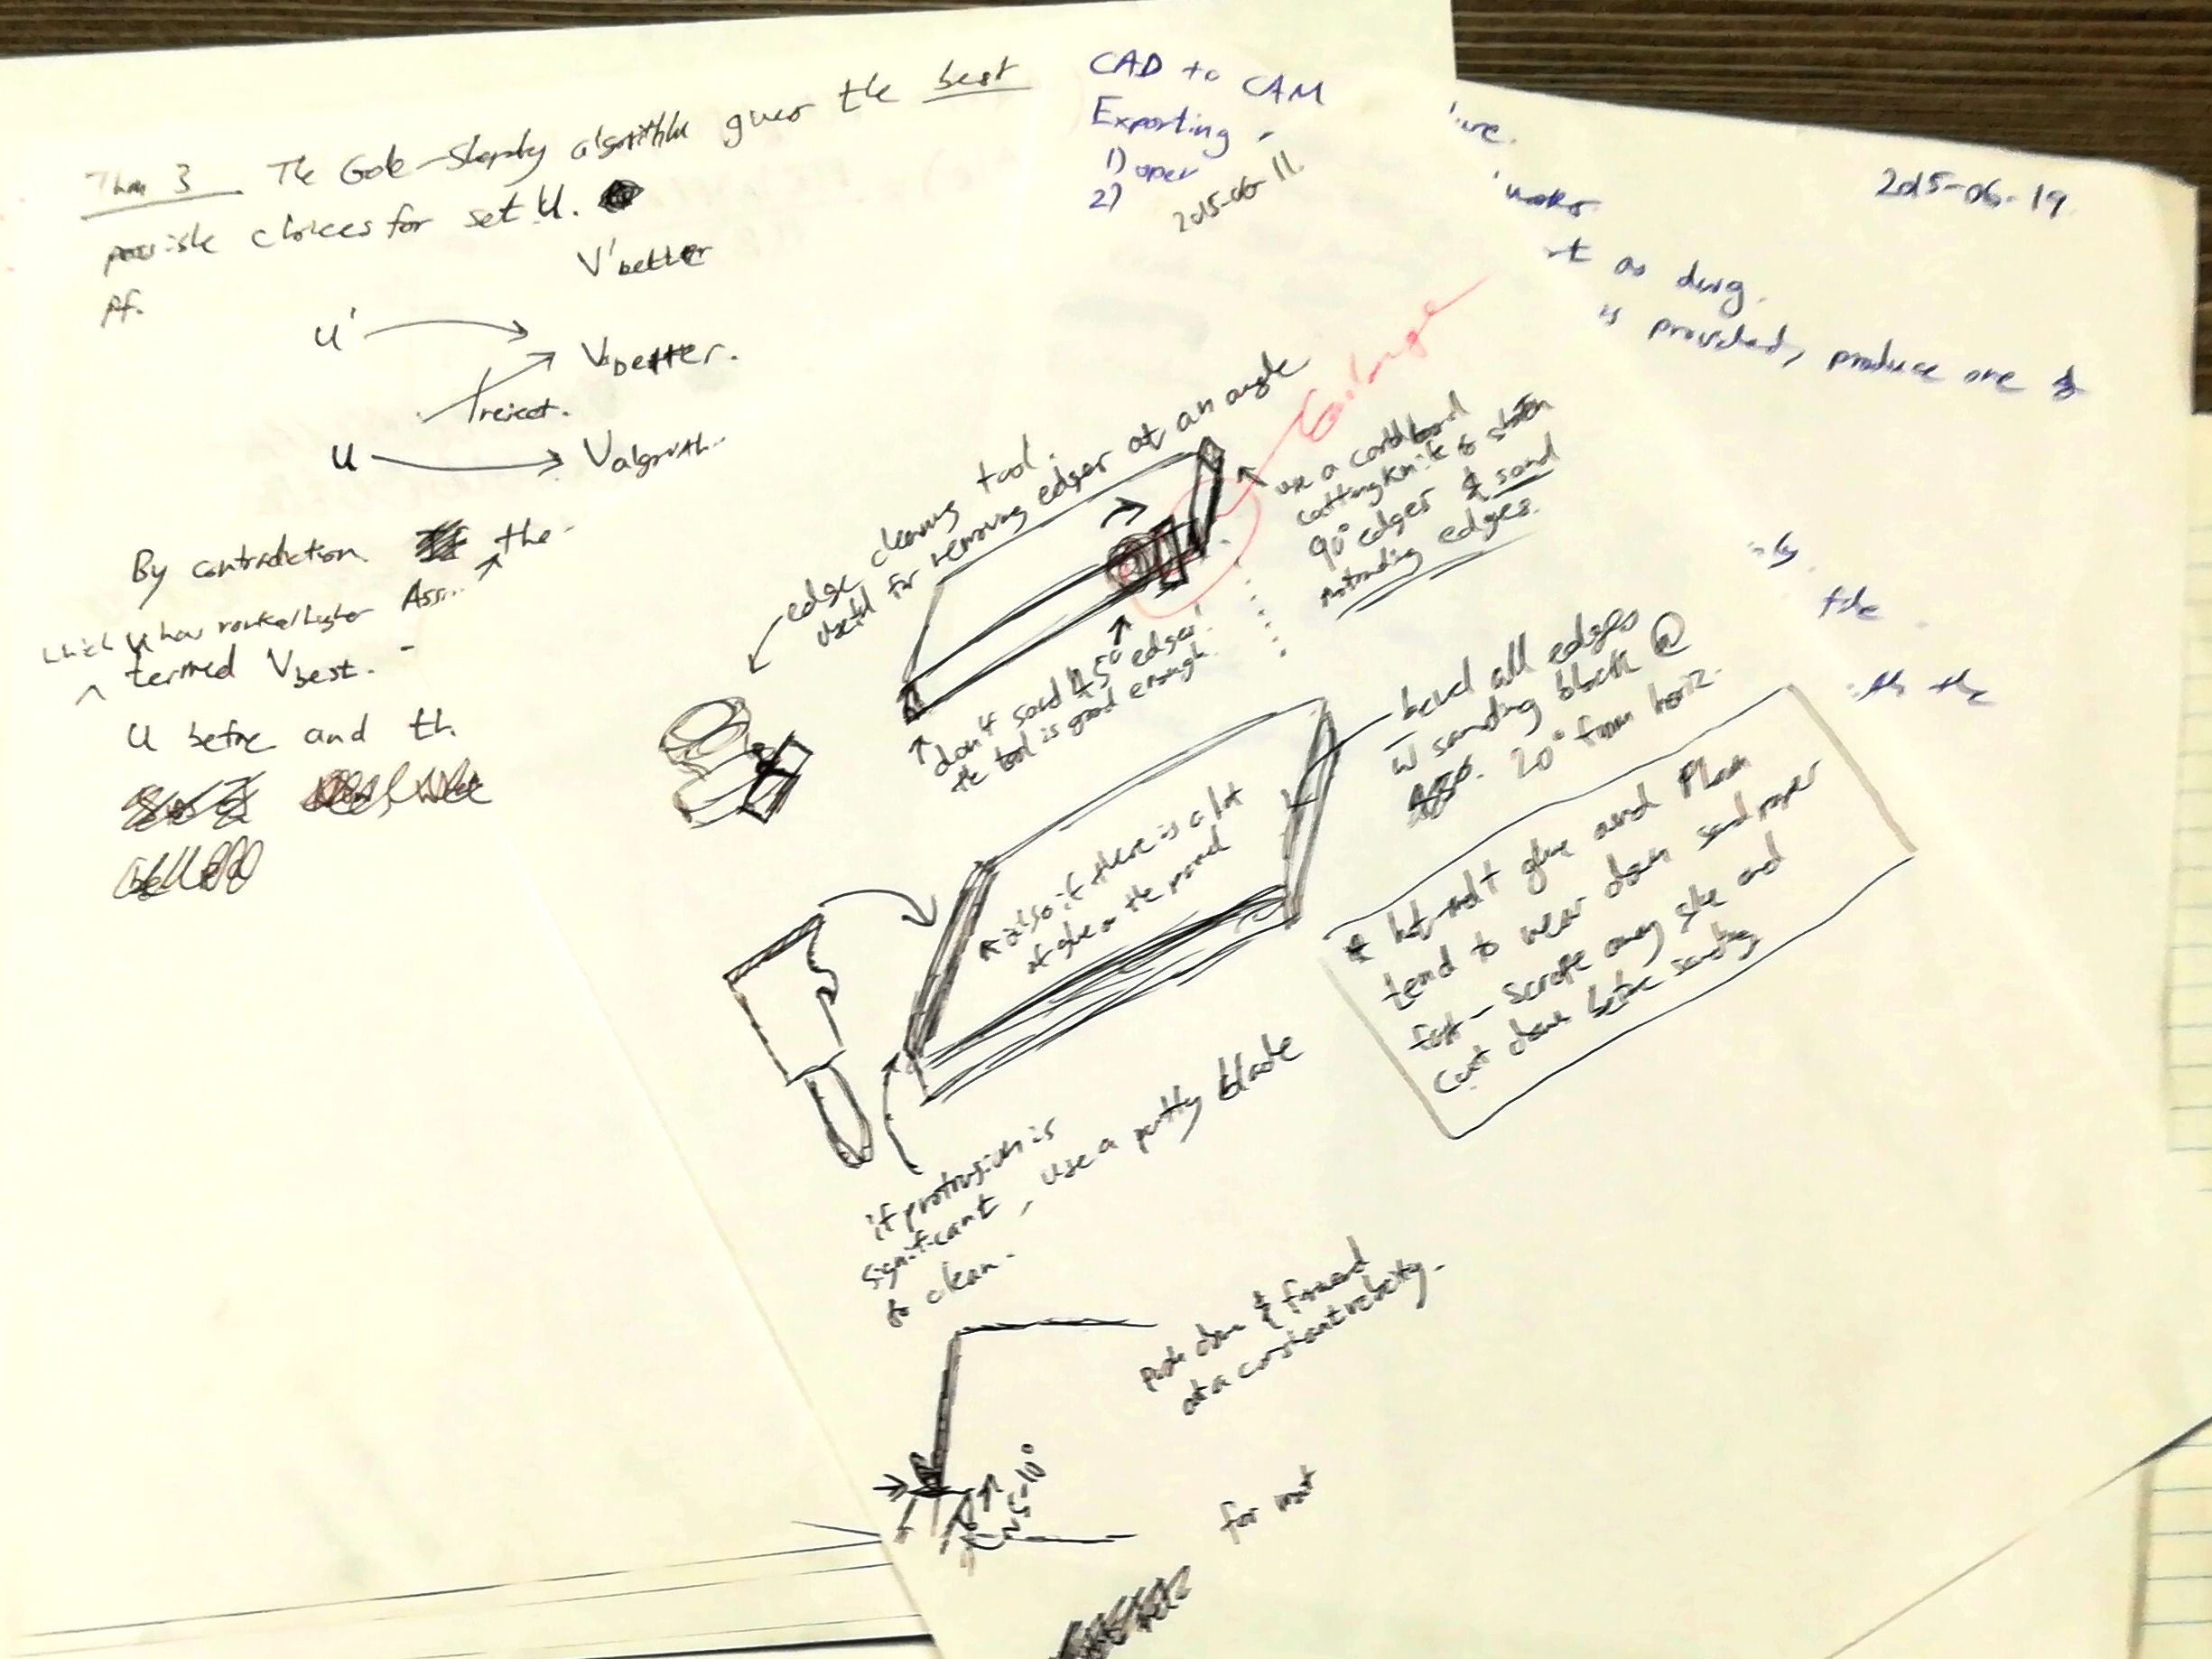 Thm 3 The Gale-Shapley algorithm gives the best
possible choices for set U.
Pf.
V'better
U'
Vbetter.
reject.
U
Valgorith..
By contradiction the
Ass...
which U has ranked higher
termed Vbest.
U before and th
CAD to CAM
Exporting
1) open
2)
2015-06-11
2015-06-19
as dwg.
is provided, produce one
file
the
Enlarge
edge cleaning tool.
useful for removing edges at an angle
use a cardboard
cutting knife to
90° edges & sand
protruding edges.
don't sand 45° edges!
the tool is good enough.
bevel all edges
w sanding block @
20° from horiz.
also if there is a lot
of glue on the
* hot-melt glue and
tend to wear down sand paper
fast - scrape away glue and
cut down before sanding
if protrusion is
significant, use a putty blade
to clean.
push down & forward
at a constant velocity.
5-10°
for